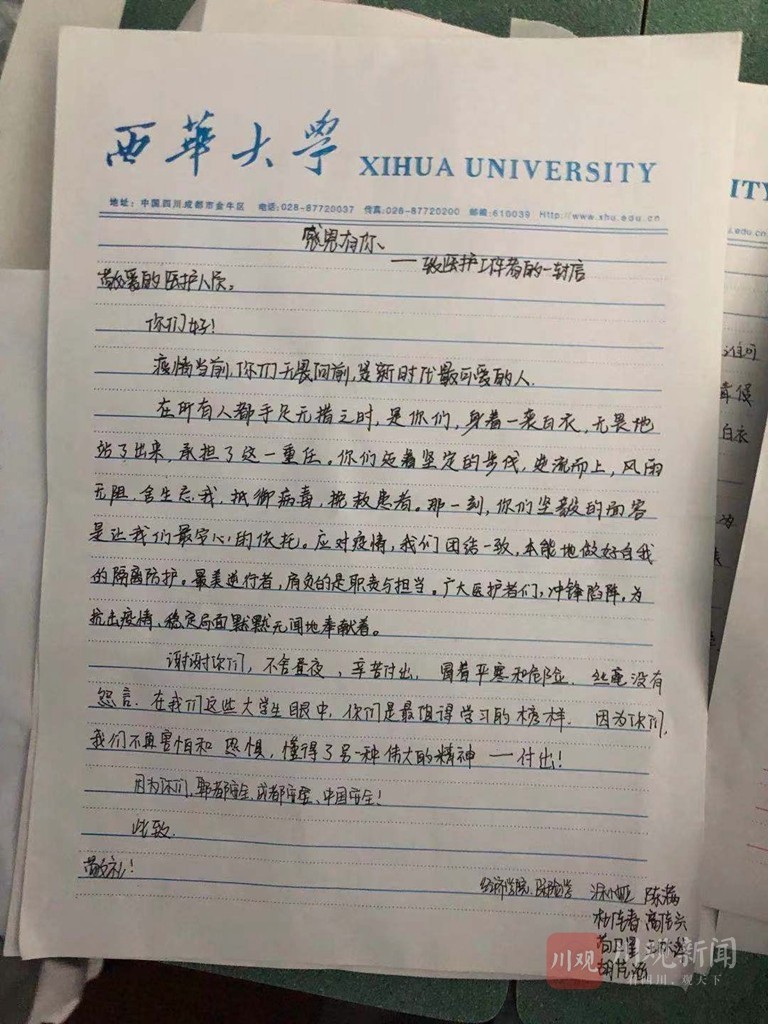 西華大學 XIHUA UNIVERSITY
地址：中国四川成都市金牛区 电话:028-87720037 传真:028-87720200 邮编:610039 Http://www.xhu.edu.cn
感恩有你、
——致医护工作者的一封信
敬爱的医护人员。
你们好！
疫情当前，你们无畏向前，是新时代最可爱的人.
在所有人都手足无措之时，是你们，身着一袭白衣，无畏地
站了出来，承担了这一重任。你们迈着坚定的步伐，逆流而上，风雨
无阻，舍生忘我，抵御病毒，挽救患者。那一刻，你们坚毅的面容
是让我们最安心的依托。应对疫情，我们团结一致，本能地做好自我
的隔离防护。最美逆行者，肩负的是职责与担当。广大医护者们，冲锋陷阵，为
抗击疫情、稳定局面默默无闻地奉献着。
谢谢你们，不舍昼夜、辛苦付出，冒着严寒和危险，丝毫没有
怨言.在我们这些大学生眼中，你们是最值得学习的榜样.因为你们,
我们不再害怕和恐惧，懂得了另一种伟大的精神——付出！
因为你们，郫都安全、成都安全、中国安全！
此致
敬礼！
经济学院 陈
杜佳春
胡芷涵
ITY
du.cn
白衣
川观 川观新闻
看四川，观天下